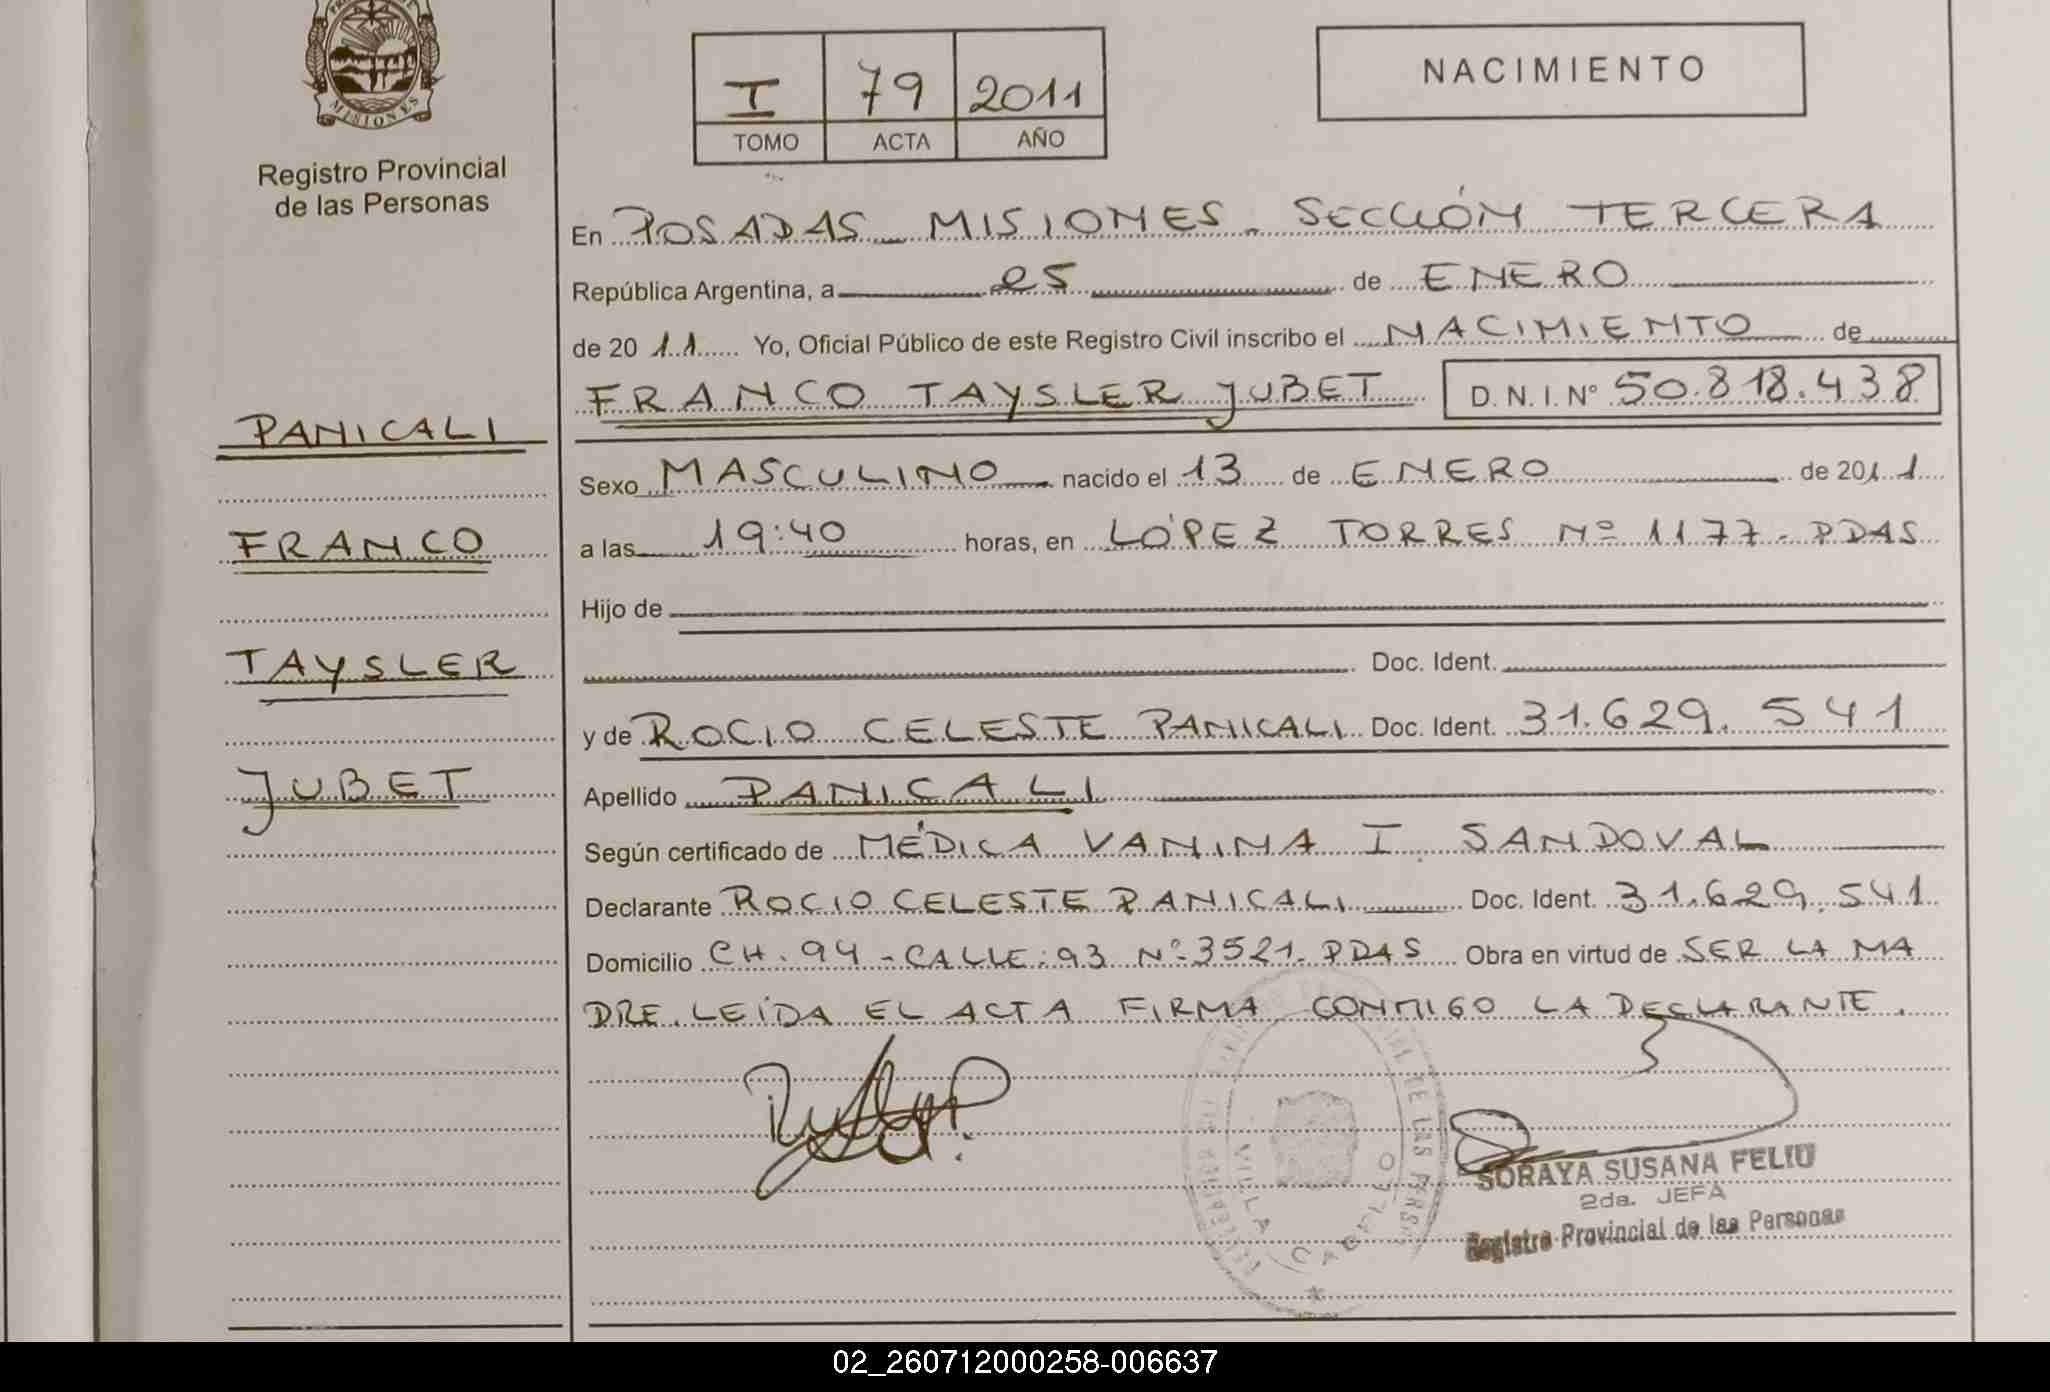 MISIONES
Registro Provincial
de las Personas
PANICALI
FRANCO
TAYSLER
JUBET
I 79 2011
TOMO ACTA AÑO
NACIMIENTO
En POSADAS _ MISIONES. SECCIÓN TERCERA
República Argentina, a 25 de ENERO
de 20 11 Yo, Oficial Público de este Registro Civil inscribo el NACIMIENTO de
FRANCO TAYSLER JUBET D. N. I. Nº 50.818.438
Sexo MASCULINO nacido el 13 de ENERO de 2011
a las 19:40 horas, en LÓPEZ TORRES Nº 1177 - PDAS
Hijo de
Doc. Ident.
y de ROCIO CELESTE PANICALI Doc. Ident. 31.629.541
Apellido PANICALI
Según certificado de MÉDICA VANINA I. SANDOVAL
Declarante ROCIO CELESTE PANICALI Doc. Ident. 31.629.541
Domicilio CH. 94 - CALLE: 93 Nº 3521- PDAS Obra en virtud de SER LA MA
DRE. LEÍDA EL ACTA FIRMA CONMIGO LA DECLARANTE.
VILLA CABELLO
SORAYA SUSANA FELIU
2da. JEFA
Registro Provincial de las Personas
02_260712000258-006637